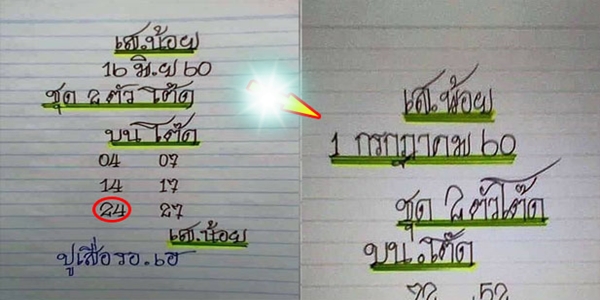 เส.น้อย
16 มิ.ย 60
ชุด 2 ตัว โต๊ด
บน โต๊ด
04 07
14 17
24 27
เส.น้อย
ปูเสื่อรอ.เฮ
เส.น้อย
1 กรกฎาคม 60
ชุด 2 ตัวโต๊ด
บน.โต๊ด
52